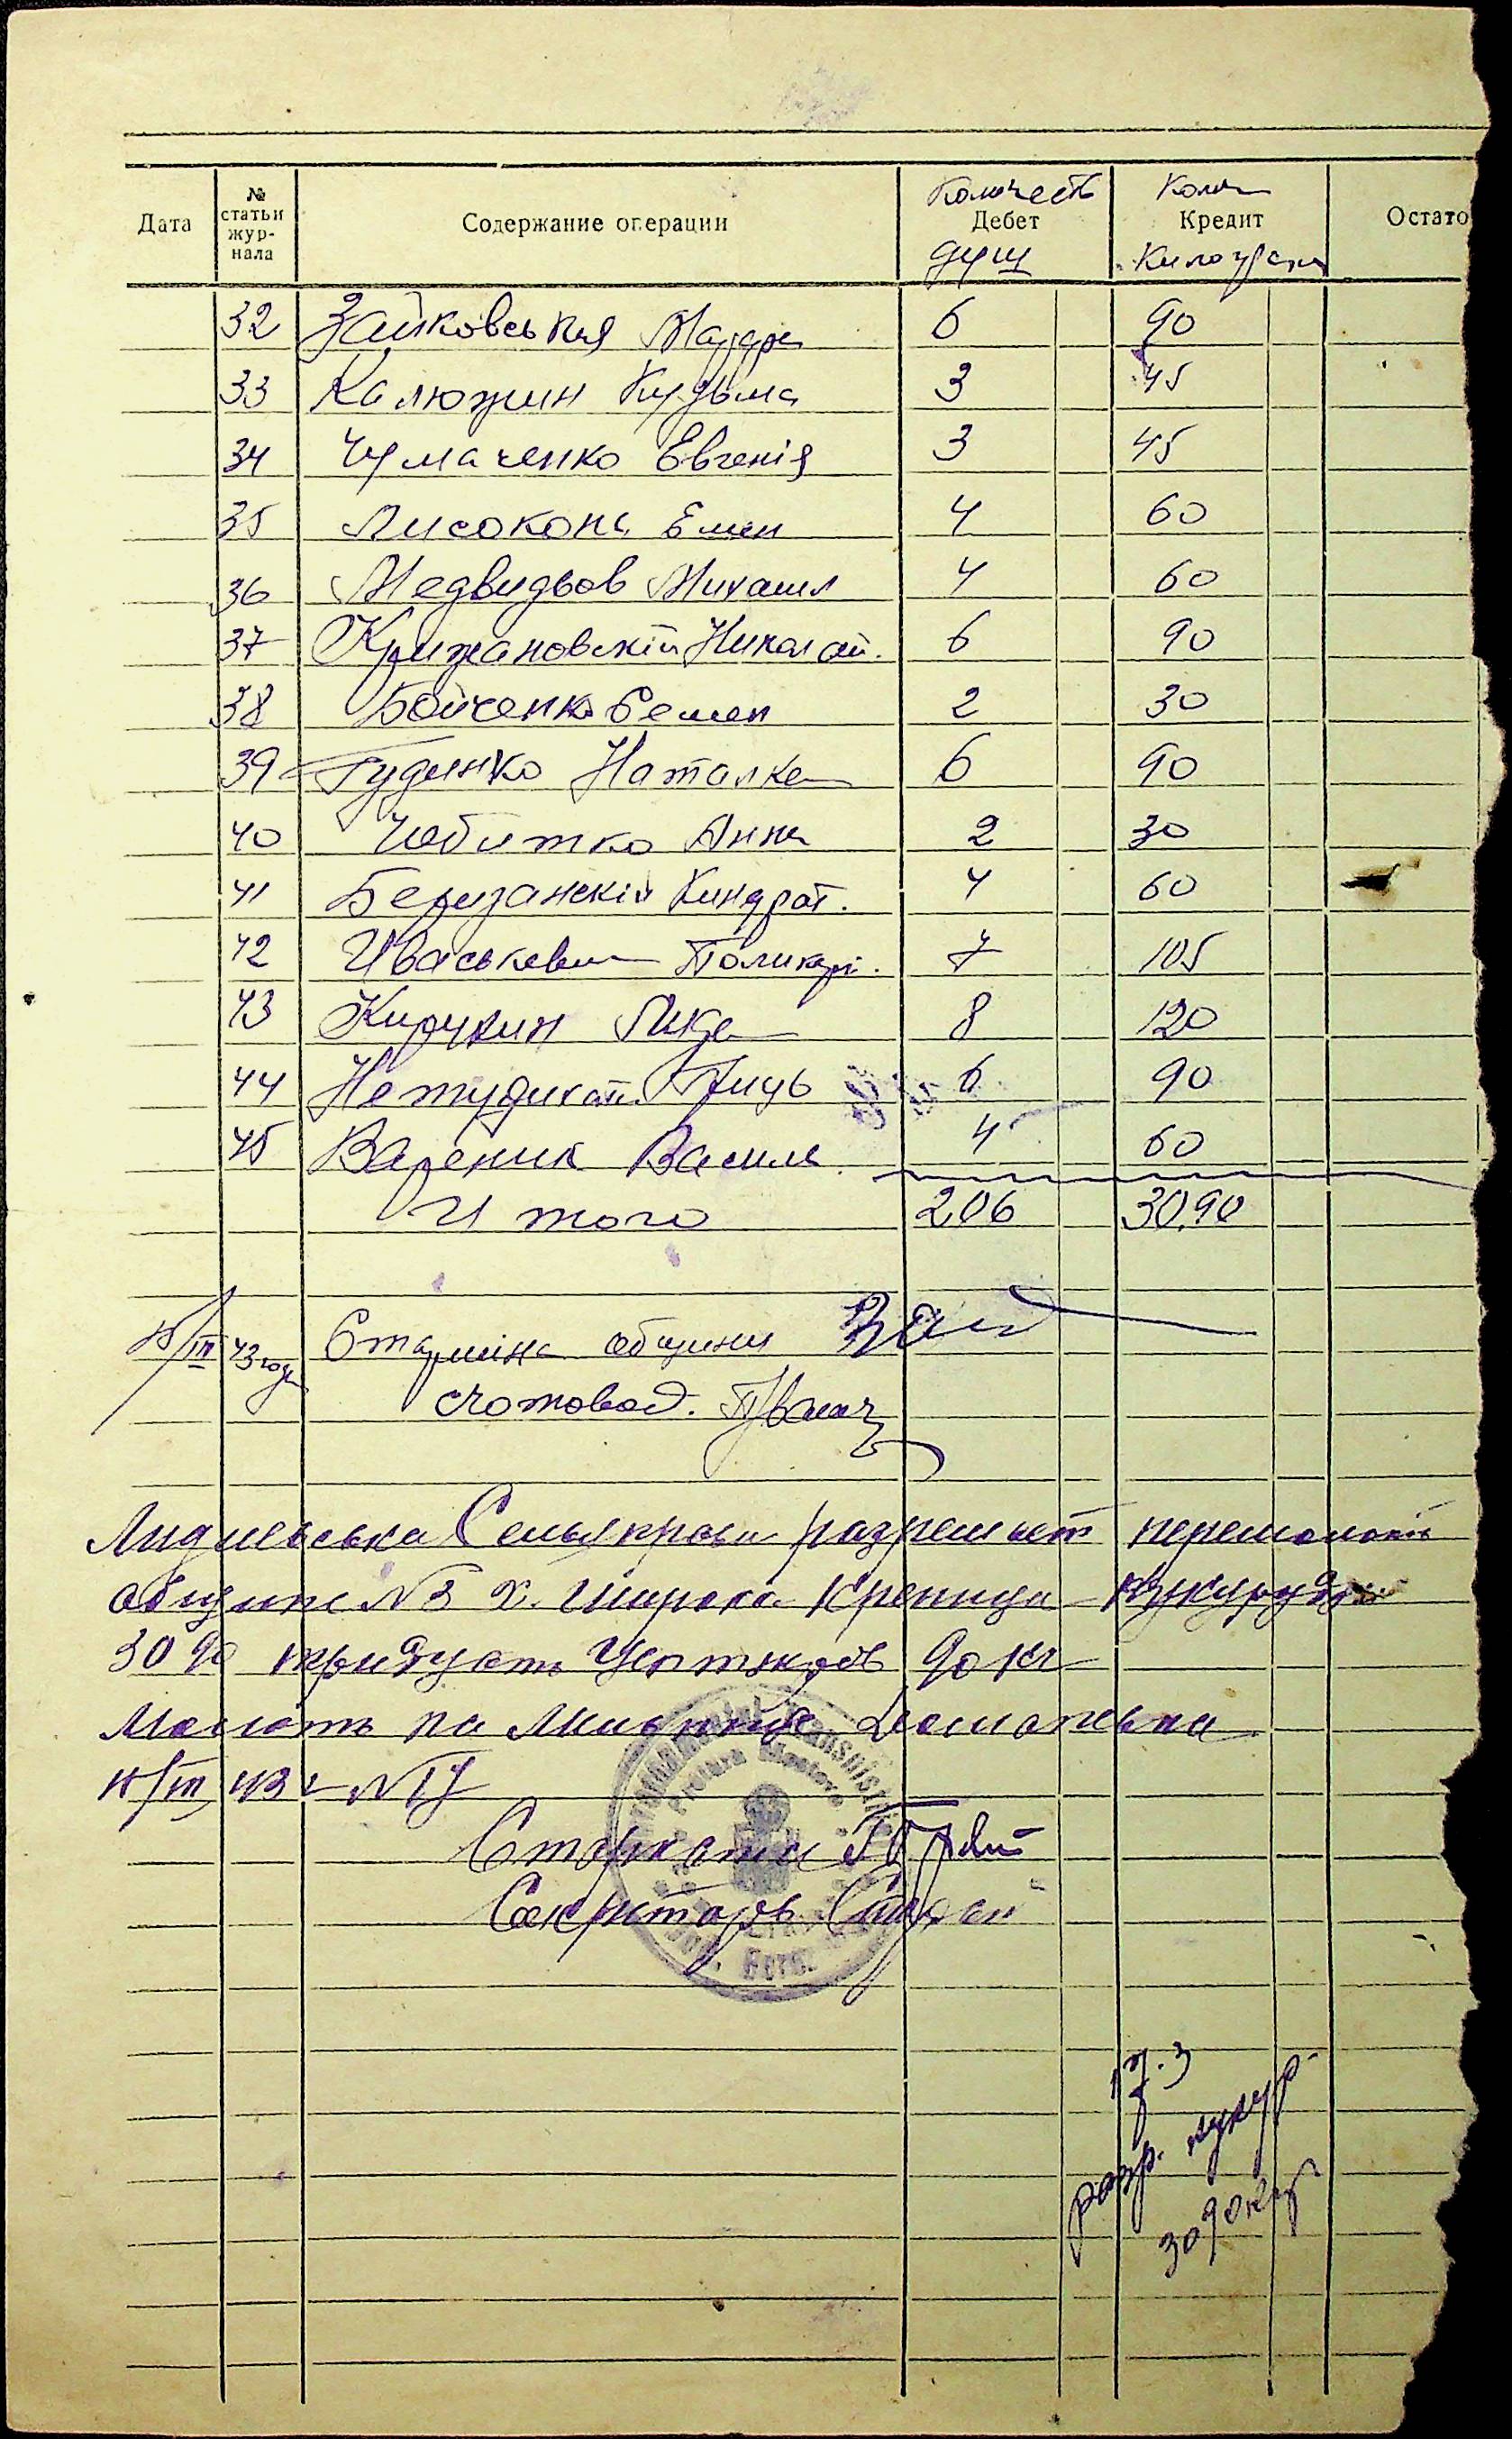 Дата № статьи журнала Содержание операции Количеств Дебет душ Колич Кредит Килограм Остато
32 Зайковськая Мар 6 90
33 Калюжин Кузьма 3 45
34 Чумаченко Евгенія 3 45
35 Лисоконь Емен 4 60
36 Медвидьов Михаил 4 60
37 Крижановскій Николай. 6 90
38 Бойченко Семен 2 30
39 Гуденко Наталка 6 90
40 Чобитко Анна 2 30
41 Березанскій Киндрат. 4 60
42 Иваськевич Поликарп. 7 105
43 Кирукин 8 120
44 Нетудихат. Гриць 6 90
45 Вареник Василь. 4 60
И того 206 30,90
15/III 43 года Старшина общини
счотовод.
Лидиевська Сельуправа разрешает перемолоть
общине №3 х. Широка Крениця кукурудзи
30 90 тридцать центнеров 90 кг
Молоть на Мильнице Доманевка
15/III 43 г №17
Guvernământul Transnistriei
Pretura Mostovoi
Староста
Секритарь
17.3
разр. кукур.
30 90 кгр